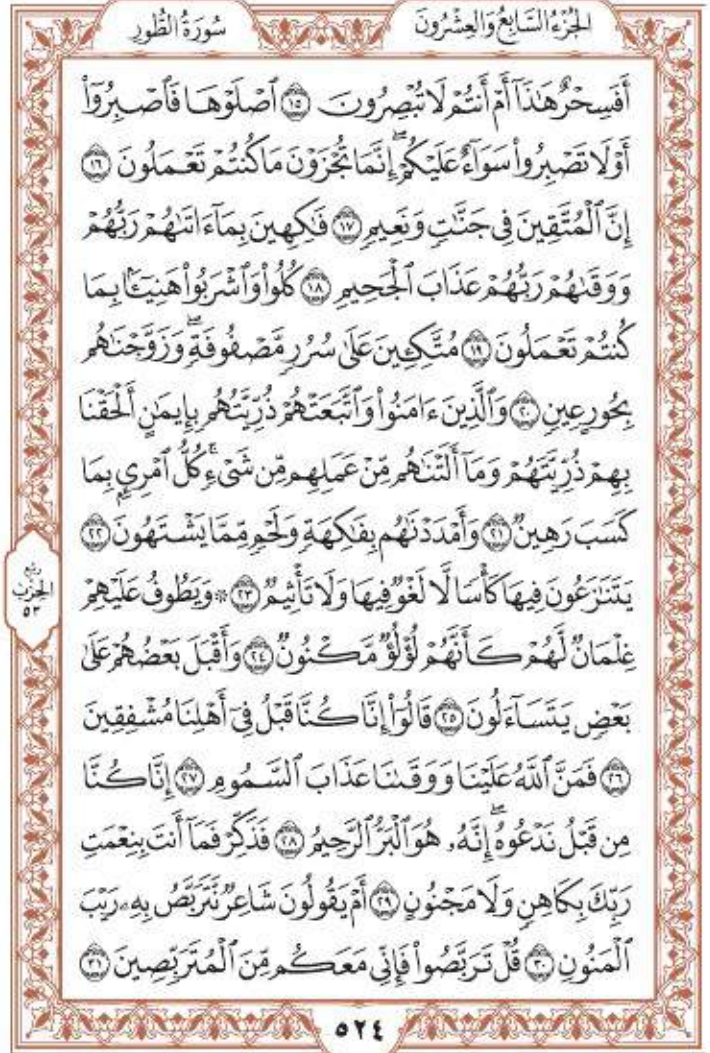 الجُزْءُ السَّابِعُ وَالعِشْرُونَ
سُورَةُ الطُّورِ
أَفَسِحْرٌ هَٰذَآ أَمْ أَنتُمْ لَا تُبْصِرُونَ ١٥ ٱصْلَوْهَا فَٱصْبِرُوٓا۟
أَوْ لَا تَصْبِرُوا۟ سَوَآءٌ عَلَيْكُمْ ۖ إِنَّمَا تُجْزَوْنَ مَا كُنتُمْ تَعْمَلُونَ ١٦
إِنَّ ٱلْمُتَّقِينَ فِى جَنَّٰتٍ وَنَعِيمٍ ١٧ فَٰكِهِينَ بِمَآ ءَاتَىٰهُمْ رَبُّهُمْ
وَوَقَىٰهُمْ رَبُّهُمْ عَذَابَ ٱلْجَحِيمِ ١٨ كُلُوا۟ وَٱشْرَبُوا۟ هَنِيٓـًٔۢا بِمَا
كُنتُمْ تَعْمَلُونَ ١٩ مُتَّكِـِٔينَ عَلَىٰ سُرُرٍ مَّصْفُوفَةٍ ۖ وَزَوَّجْنَٰهُم
بِحُورٍ عِينٍ ٢٠ وَٱلَّذِينَ ءَامَنُوا۟ وَٱتَّبَعَتْهُمْ ذُرِّيَّتُهُم بِإِيمَٰنٍ أَلْحَقْنَا
بِهِمْ ذُرِّيَّتَهُمْ وَمَآ أَلَتْنَٰهُم مِّنْ عَمَلِهِم مِّن شَىْءٍ ۚ كُلُّ ٱمْرِئٍۭ بِمَا
كَسَبَ رَهِينٌ ٢١ وَأَمْدَدْنَٰهُم بِفَٰكِهَةٍ وَلَحْمٍ مِّمَّا يَشْتَهُونَ ٢٢
يَتَنَٰزَعُونَ فِيهَا كَأْسًا لَّا لَغْوٌ فِيهَا وَلَا تَأْثِيمٌ ٢٣ ۞ وَيَطُوفُ عَلَيْهِمْ
غِلْمَانٌ لَّهُمْ كَأَنَّهُمْ لُؤْلُؤٌ مَّكْنُونٌ ٢٤ وَأَقْبَلَ بَعْضُهُمْ عَلَىٰ
بَعْضٍ يَتَسَآءَلُونَ ٢٥ قَالُوٓا۟ إِنَّا كُنَّا قَبْلُ فِىٓ أَهْلِنَا مُشْفِقِينَ
٢٦ فَمَنَّ ٱللَّهُ عَلَيْنَا وَوَقَىٰنَا عَذَابَ ٱلسَّمُومِ ٢٧ إِنَّا كُنَّا
مِن قَبْلُ نَدْعُوهُ ۖ إِنَّهُۥ هُوَ ٱلْبَرُّ ٱلرَّحِيمُ ٢٨ فَذَكِّرْ فَمَآ أَنتَ بِنِعْمَتِ
رَبِّكَ بِكَاهِنٍ وَلَا مَجْنُونٍ ٢٩ أَمْ يَقُولُونَ شَاعِرٌ نَّتَرَبَّصُ بِهِۦ رَيْبَ
ٱلْمَنُونِ ٣٠ قُلْ تَرَبَّصُوا۟ فَإِنِّى مَعَكُم مِّنَ ٱلْمُتَرَبِّصِينَ ٣١
ربع
الحزب
٥٣
٥٢٤